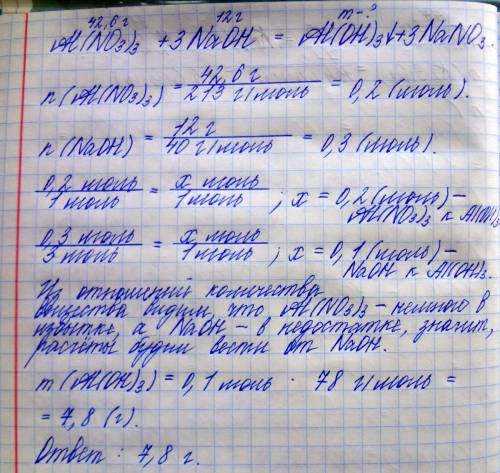 42,6 г 12 г m-?
Al(NO₃)₃ + 3 NaOH = Al(OH)₃↓ + 3 NaNO₃
n(Al(NO₃)₃) = 42,6 г / 213 г/моль = 0,2 (моль).
n(NaOH) = 12 г / 40 г/моль = 0,3 (моль).
0,2 моль / 1 моль = x моль / 1 моль ; x = 0,2 (моль) –
Al(NO₃)₃ к Al(OH)₃
0,3 моль / 3 моль = x моль / 1 моль ; x = 0,1 (моль) –
NaOH к Al(OH)₃.
Из отношений количества
вещества видим, что Al(NO₃)₃ – немного в
избытке, а NaOH – в недостатке, значит,
расчёты будем вести от NaOH.
m(Al(OH)₃) = 0,1 моль · 78 г/моль =
= 7,8 (г).
Ответ: 7,8 г.